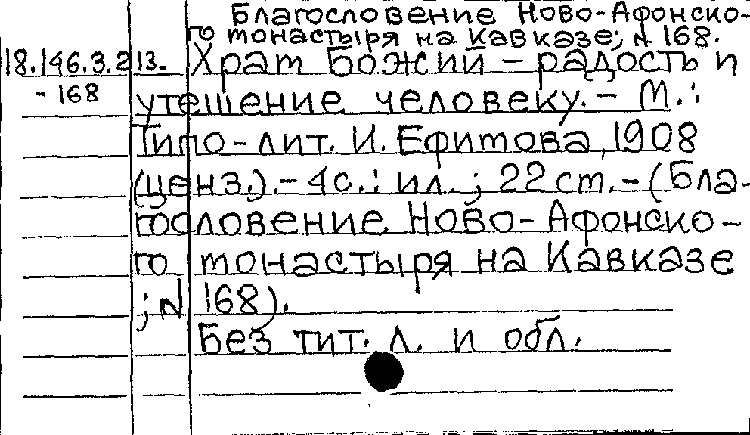 Благословение Ново-Афонско-
го монастыря на Кавказе; N 168.
18.146.3.213. Храм Божий – радость и
-168 утешение человеку. – М.:
Типо-лит. И. Ефимова, 1908
(ценз.). – 4с.: ил.; 22 см. – (Бла-
гословение Ново-Афонско-
го монастыря на Кавказе
; N 168).
Без тит. л. и обл.